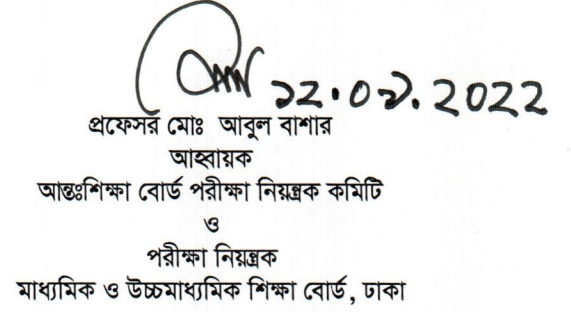 ১২.০৯.২০২২
প্রফেসর মোঃ আবুল বাশার
আহ্বায়ক
আন্তঃশিক্ষা বোর্ড পরীক্ষা নিয়ন্ত্রক কমিটি
ও
পরীক্ষা নিয়ন্ত্রক
মাধ্যমিক ও উচ্চমাধ্যমিক শিক্ষা বোর্ড, ঢাকা